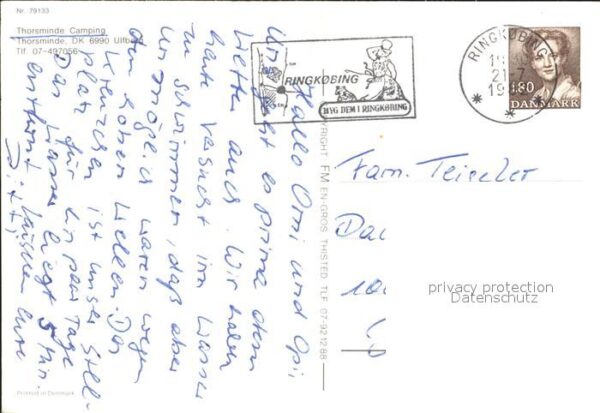 Nr. 79133
Thorsminde Camping
Thorsminde, DK 6990 Ulfborg
Tlf. 07-497056
Hallo Omi und Opi,
Uns geht es prima dem
Wetter auch. Wir haben
heute versucht im Wasser
zu schwimmen, daß aber
unmöglich waren wegen
den hohen Wellen. Das
Kreuzchen ist unser Stell-
platz für ein paar Tage
Das Wasser liegt 5 Min.
entfernt. Eure
RINGKØBING
BYG DEM I RINGKØBING
RINGKØBING
21.7
19
180
DANMARK
Fam. Teischer
privacy protection
Datenschutz
COPYRIGHT FM EN-GROS THISTED TLF 07-921288
Printed in Denmark